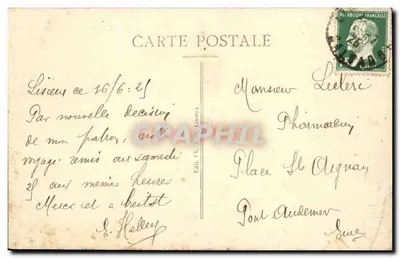 CARTE POSTALE
Lisieux ce 16/6.25
Par nouvelle decision
de mon patron,
voyage remis au samedi
25 aux memes heures
Merci et a bientot
E.
Monsieur Leclerc
Pharmacien
Place St Aignan
Pont Audemer
Eure
CPAPHIL